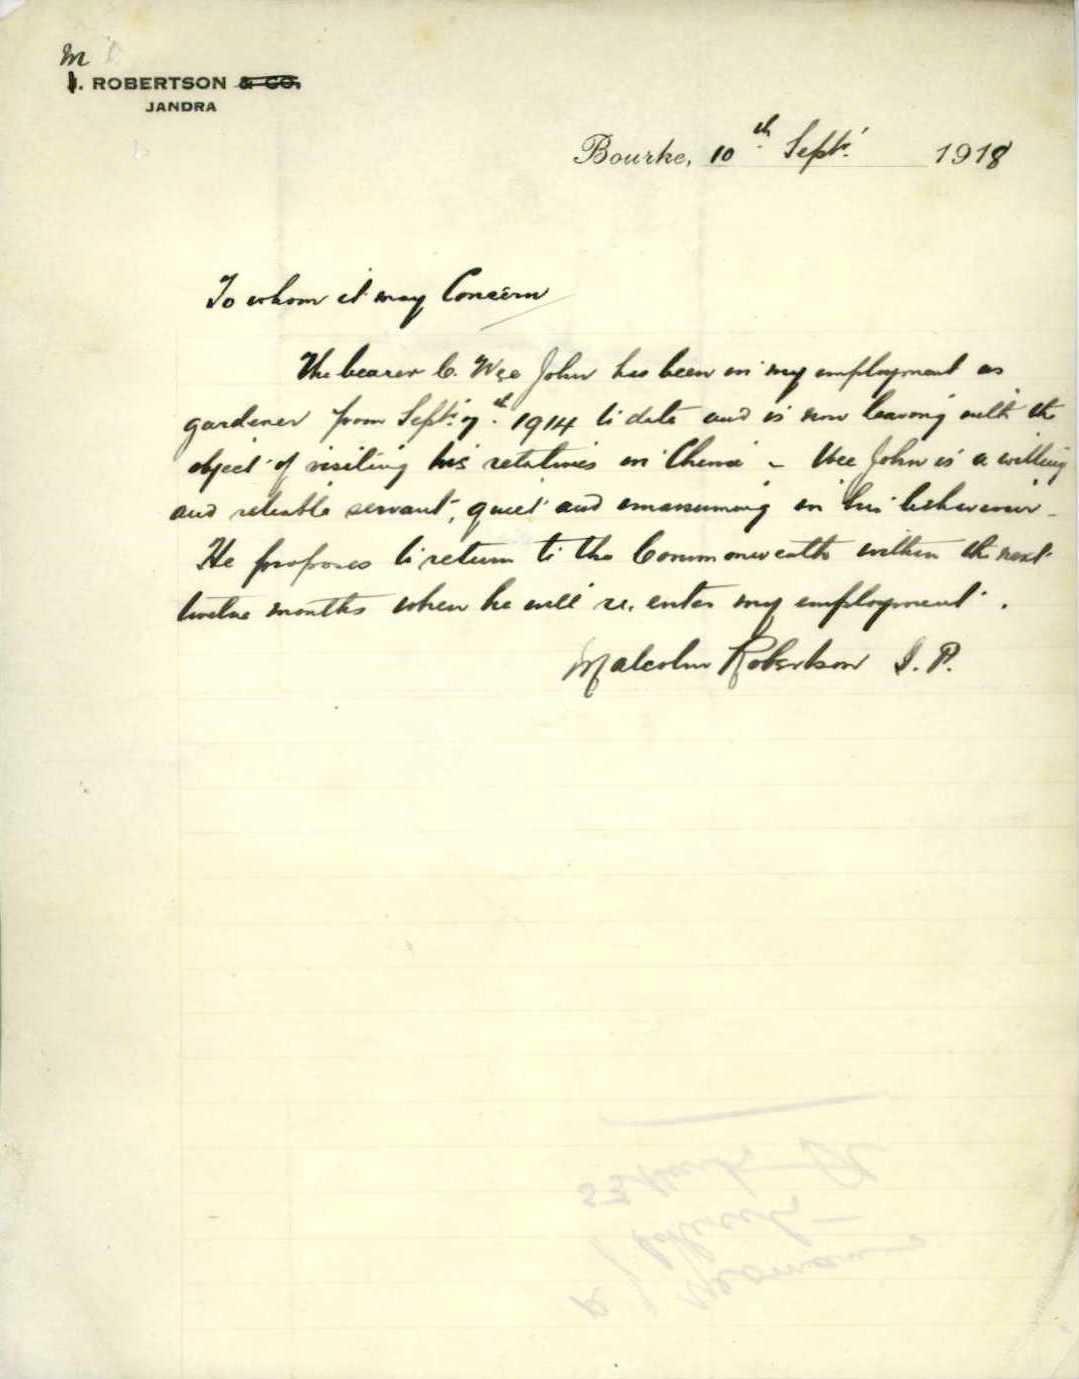 M
J. ROBERTSON & CO.
JANDRA
Bourke, 10th Septr. 1918
To whom it may Concern
The bearer C. Wee John has been in my employment as
gardener from Septr. 7th. 1914 to date and is now leaving with the
object of visiting his relatives in China - Wee John is a willing
and reliable servant, quiet and unassuming in his behaviour -
He proposes to return to the Commonwealth within the next
twelve months when he will re.enter my employment.
Malcolm Robertson J. P.